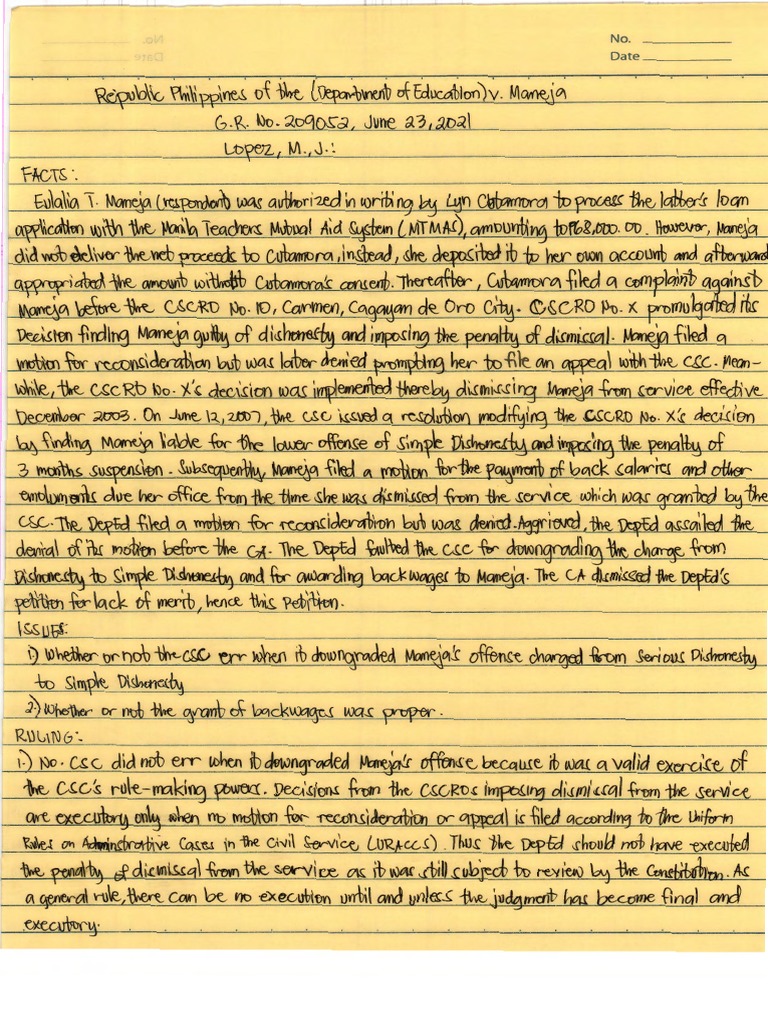 No.
Date
Republic Philippines of the (Department of Education) v. Maneja
G.R. No. 209052, June 23, 2021
Lopez, M., J.:
FACTS:
Eulalia T. Maneja (respondent) was authorized in writing by Lyn Cutamora to process the latter's loan
application with the Manila Teachers Mutual Aid System (MTMAS), amounting to ₱68,000.00. However, Maneja
did not deliver the net proceeds to Cutamora, instead, she deposited it to her own account and afterward
appropriated the amount without Cutamora's consent. Thereafter, Cutamora filed a complaint against
Maneja before the CSCRO No. 10, Carmen, Cagayan de Oro City. CSCRO No. X promulgated its
Decision finding Maneja guilty of dishonesty and imposing the penalty of dismissal. Maneja filed a
motion for reconsideration but was later denied prompting her to file an appeal with the CSC. Mean-
while, the CSCRO No. X's decision was implemented thereby dismissing Maneja from service effective
December 2003. On June 12, 2007, the CSC issued a resolution modifying the CSCRO No. X's decision
by finding Maneja liable for the lower offense of Simple Dishonesty and imposing the penalty of
3 months suspension. Subsequently, Maneja filed a motion for the payment of back salaries and other
emoluments due her office from the time she was dismissed from the service which was granted by the
CSC. The DepEd filed a motion for reconsideration but was denied. Aggrieved, the DepEd assailed the
denial of its motion before the CA. The DepEd faulted the CSC for downgrading the charge from
Dishonesty to Simple Dishonesty and for awarding backwages to Maneja. The CA dismissed the DepEd's
petition for lack of merit, hence this Petition.
ISSUES:
1.) Whether or not the CSC err when it downgraded Maneja's offense charged from Serious Dishonesty
to Simple Dishonesty
2.) Whether or not the grant of backwages was proper.
RULING:
1.) No. CSC did not err when it downgraded Maneja's offense because it was a valid exercise of
the CSC's rule-making powers. Decisions from the CSCROs imposing dismissal from the service
are executory only when no motion for reconsideration or appeal is filed according to the Uniform
Rules on Administrative Cases in the Civil Service (URACCS). Thus the DepEd should not have executed
the penalty of dismissal from the service as it was still subject to review by the Constitution. As
a general rule, there can be no execution until and unless the judgment has become final and
executory.